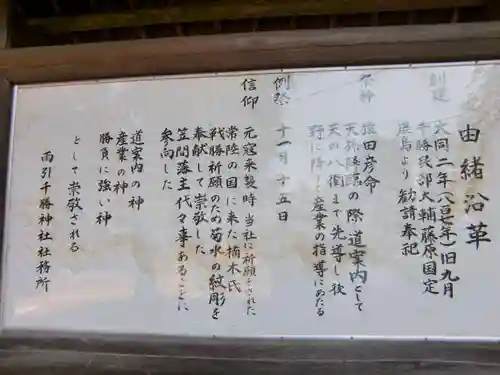 由緒沿革
創建
大同二年(八〇七年)旧九月
千勝民部大輔藤原国定
鹿島より勧請奉祀
祭神
猿田彦命
天孫降臨の際道案内として
天の八衢まで先導し後
野に降りて産業の指導にあたる
例祭
十一月十五日
信仰
元寇来襲時当社に祈願をされた
常陸の国に来た楠木氏
戦勝祈願のため菊水の紋彫を
奉献して崇敬した
笠間藩主代々事あるごとに
参向した
道案内の神
産業の神
勝負に強い神
として崇敬される
雨引千勝神社社務所